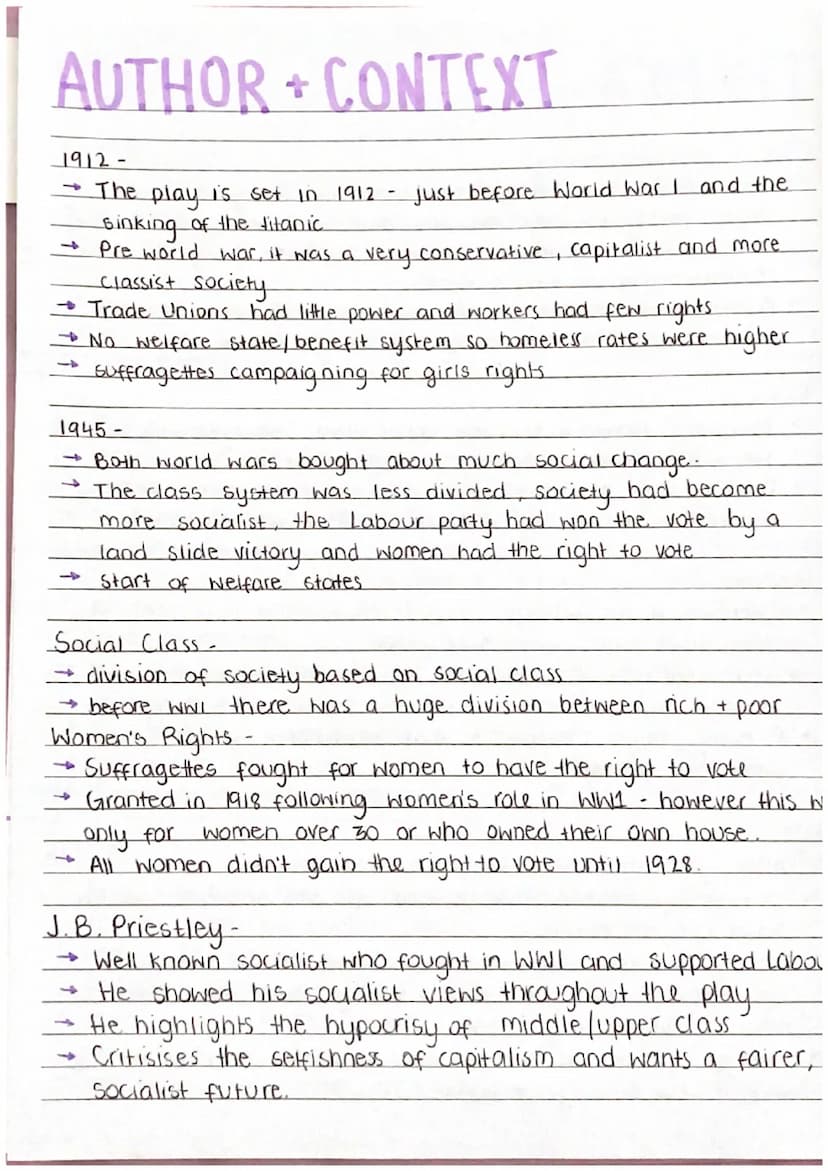 AUTHOR + CONTEXT
1912 -
→ The play is set in 1912 - just before World War 1 and the
sinking of the titanic
→ Pre world war, it was a very conservative, capitalist and more
classist society
→ Trade Unions had little power and workers had few rights
→ No welfare state/benefit system so homeless rates were higher
→ suffragettes campaigning for girls rights
1945 -
→ Both world wars bought about much social change.
→ The class system was less divided, society had become
more socialist, the Labour party had won the vote by a
land slide victory and women had the right to vote
→ start of welfare states
Social Class -
→ division of society based on social class
→ before WW1 there was a huge division between rich + poor
Women's Rights -
→ Suffragettes fought for women to have the right to vote
→ Granted in 1918 following women's role in WW1 - however this w
only for women over 30 or who owned their own house.
→ All women didn't gain the right to vote until 1928.
J.B. Priestley -
→ Well known socialist who fought in WW1 and supported Labou
→ He showed his socialist views throughout the play
→ He highlights the hypocrisy of middle/upper class
→ Critisises the selfishness of capitalism and wants a fairer,
socialist future.